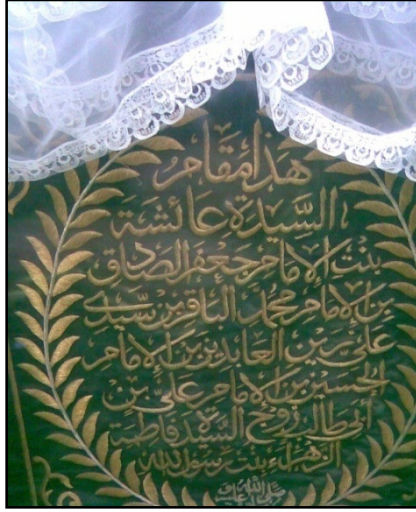 هذا مقام
السيدة عائشة
بنت الإمام جعفر الصادق
بن الإمام محمد الباقر بن سيدي
علي زين العابدين بن الإمام
الحسين بن الإمام علي بن
أبي طالب زوج السيدة فاطمة
الزهراء بنت رسول الله
صلى الله عليه وسلم